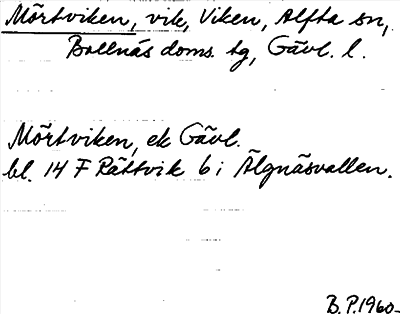 Mörtviken, vik, Viken, Alfta sn,
Bollnäs doms. tg, Gävl. l.
Mörtviken, ek Gävl.
bl. 14 F Rättvik 6 i Älgnäsvallen.
B.P.1960